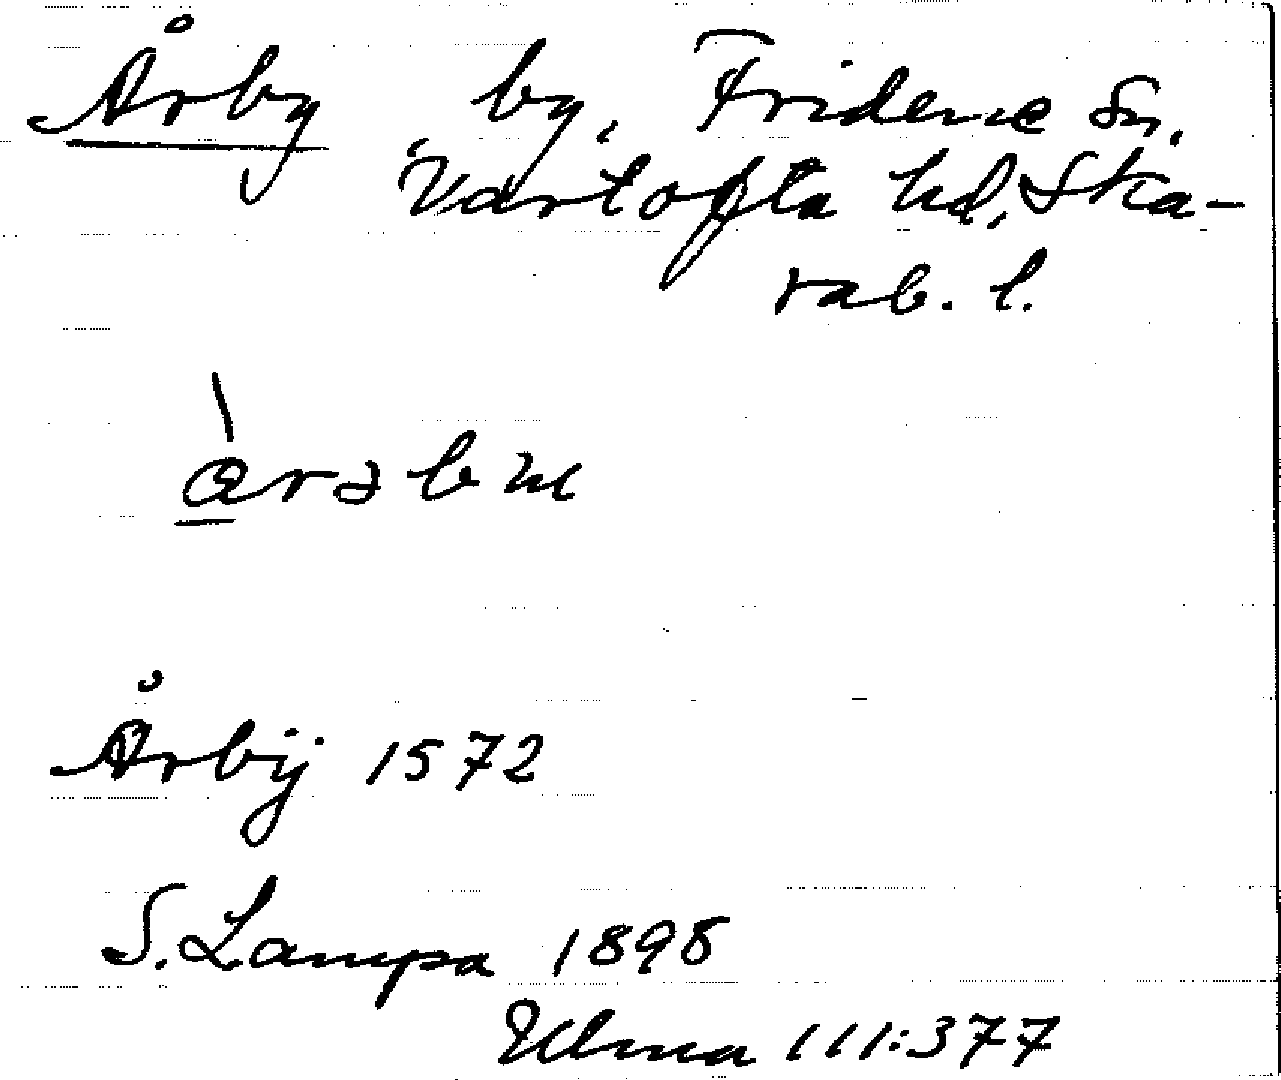 Årby by, Fridene Sn.
Vartofta hd, Ska-
rab. l.
Årbÿ 1572
S. Lampa 1898
Ulma 111:377